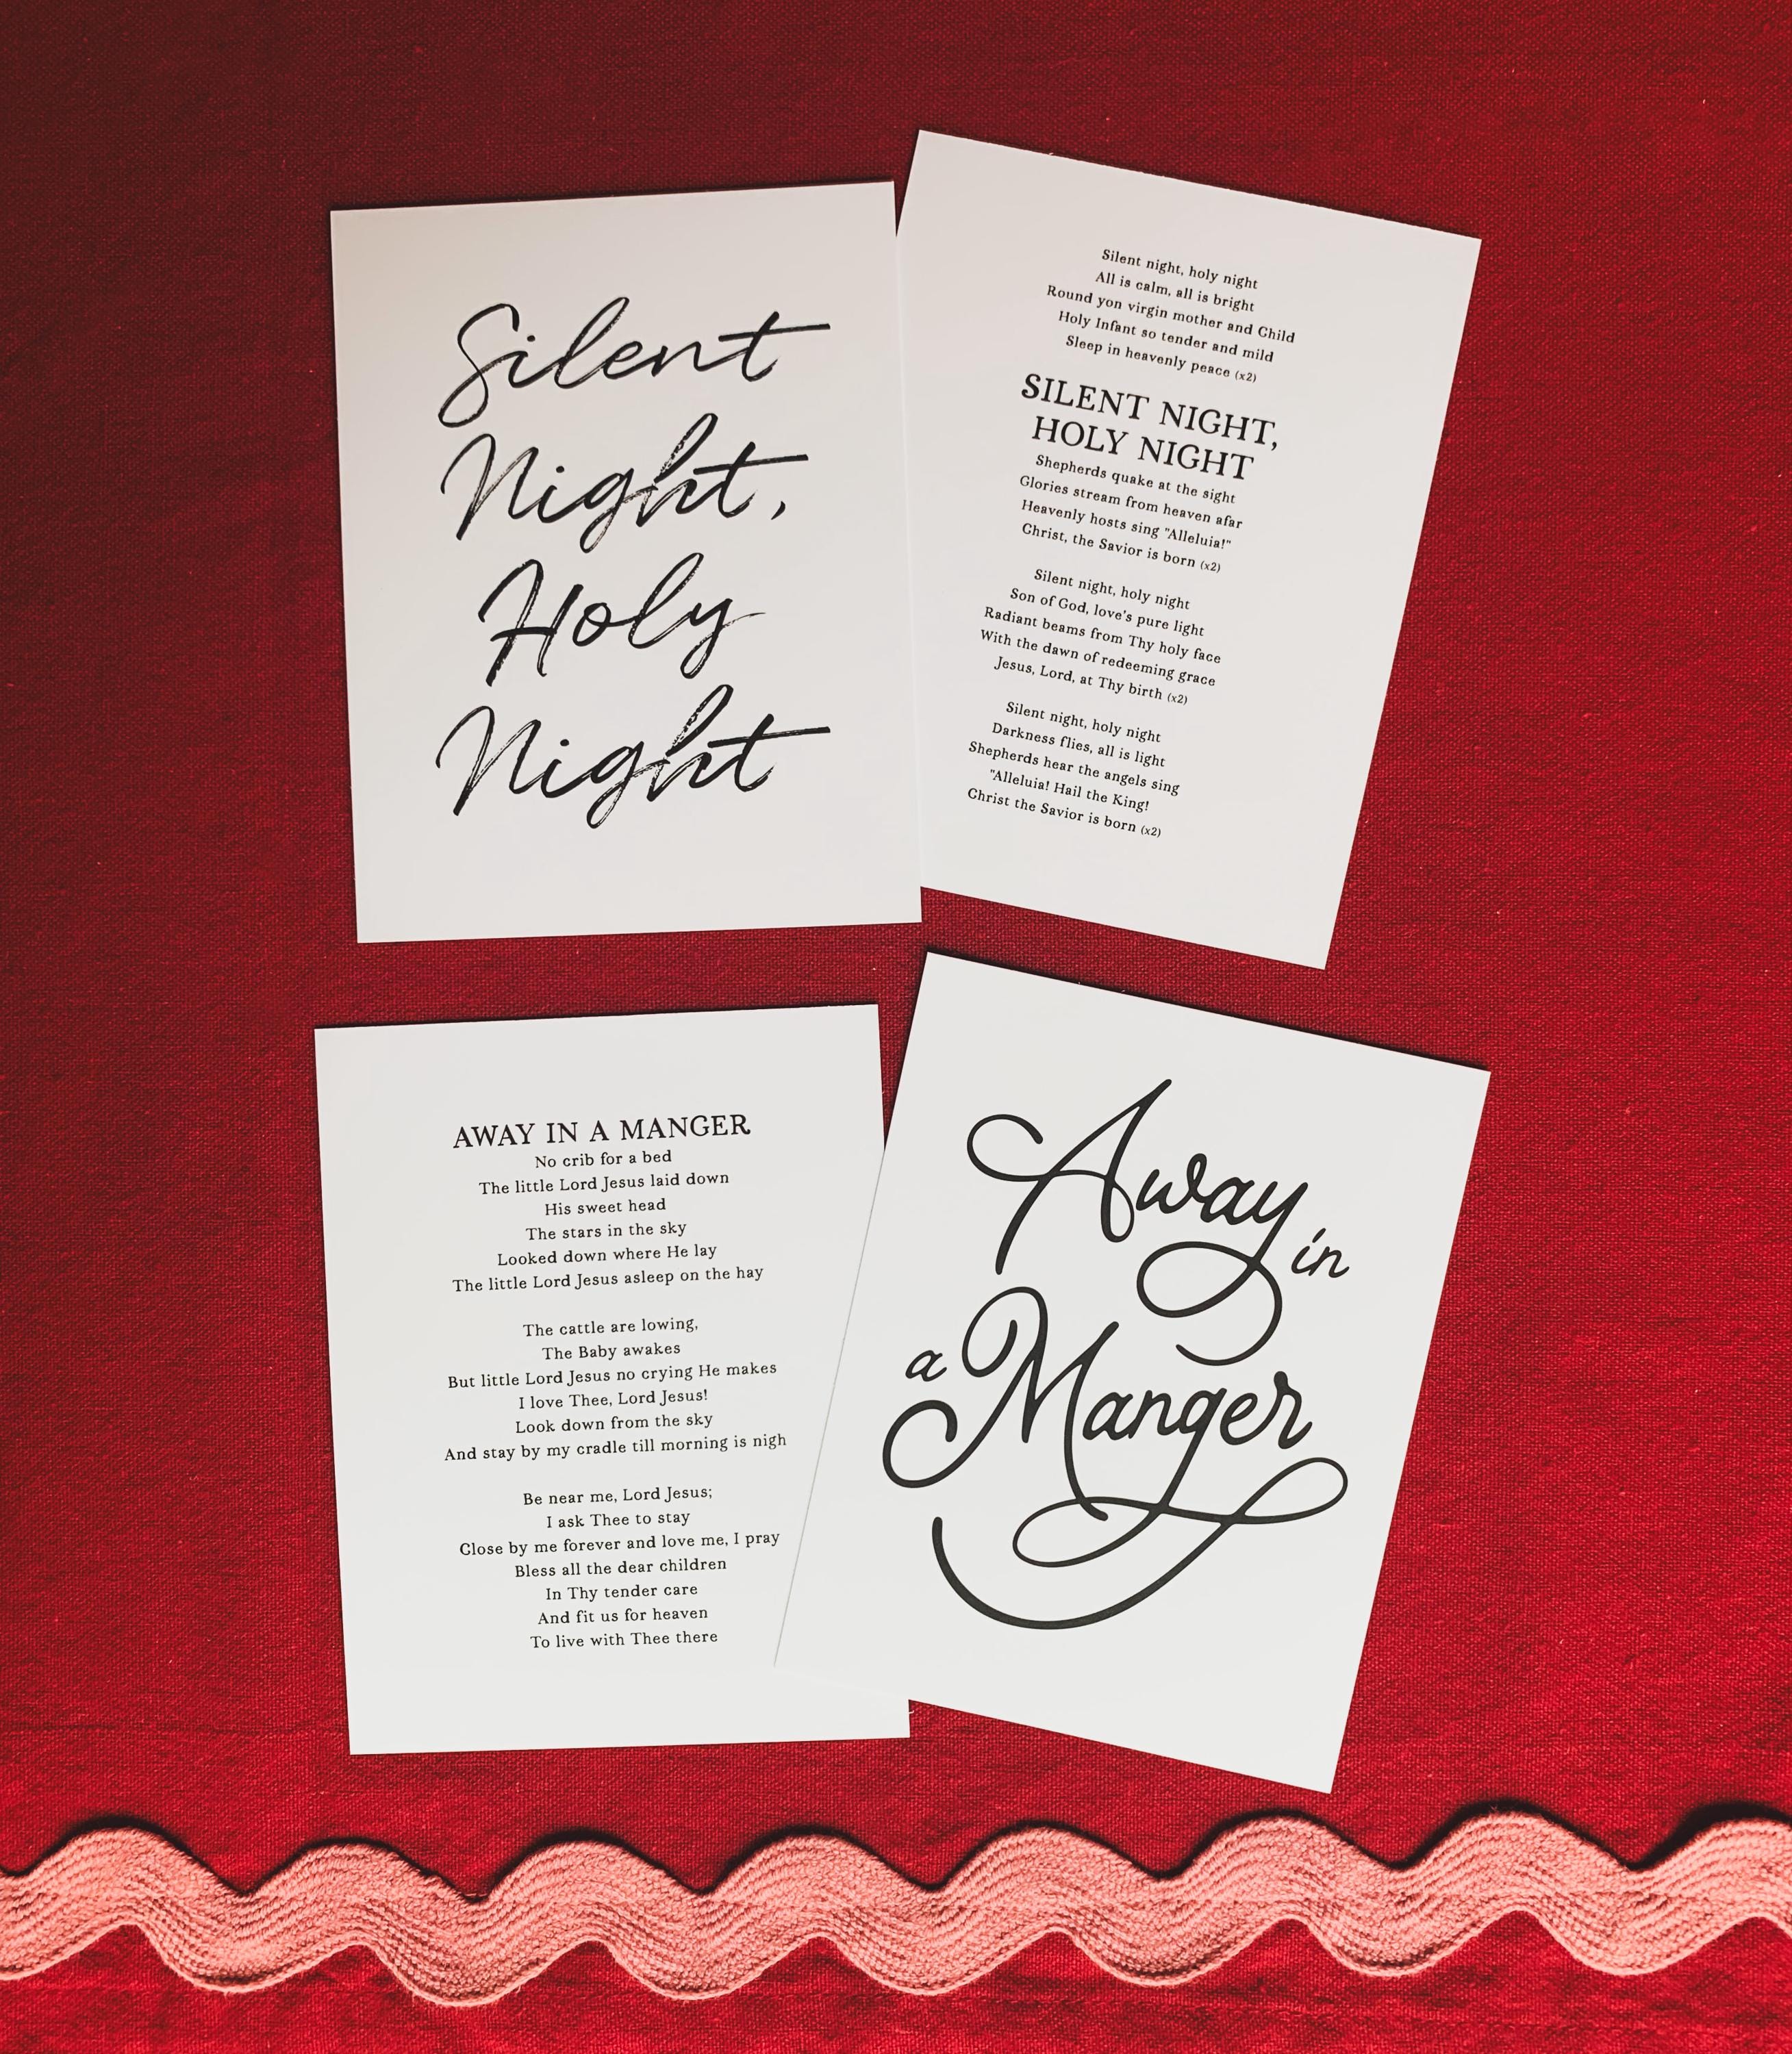 Silent
Night,
Holy
Night
Silent night, holy night
All is calm, all is bright
Round yon virgin mother and Child
Holy Infant so tender and mild
Sleep in heavenly peace (x2)
SILENT NIGHT,
HOLY NIGHT
Shepherds quake at the sight
Glories stream from heaven afar
Heavenly hosts sing "Alleluia!"
Christ, the Savior is born (x2)
Silent night, holy night
Son of God, love's pure light
Radiant beams from Thy holy face
With the dawn of redeeming grace
Jesus, Lord, at Thy birth (x2)
Silent night, holy night
Darkness flies, all is light
Shepherds hear the angels sing
"Alleluia! Hail the King!
Christ the Savior is born (x2)
AWAY IN A MANGER
No crib for a bed
The little Lord Jesus laid down
His sweet head
The stars in the sky
Looked down where He lay
The little Lord Jesus asleep on the hay
The cattle are lowing,
The Baby awakes
But little Lord Jesus no crying He makes
I love Thee, Lord Jesus!
Look down from the sky
And stay by my cradle till morning is nigh
Be near me, Lord Jesus;
I ask Thee to stay
Close by me forever and love me, I pray
Bless all the dear children
In Thy tender care
And fit us for heaven
To live with Thee there
Away in
a Manger